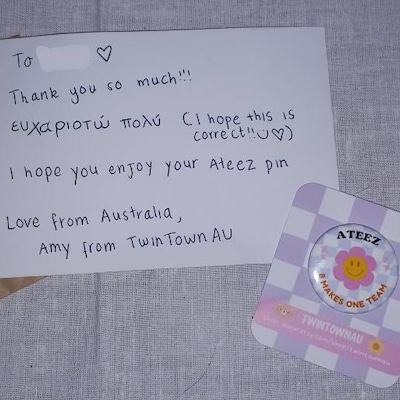 To ♡
Thank you so much!!!
ευχαριστώ πολύ (I hope this is
correct!!☺♡)
I hope you enjoy your Ateez pin
Love from Australia,
Amy from TwinTownAU
ATEEZ
8 MAKES ONE TEAM
TWINTOWNAU